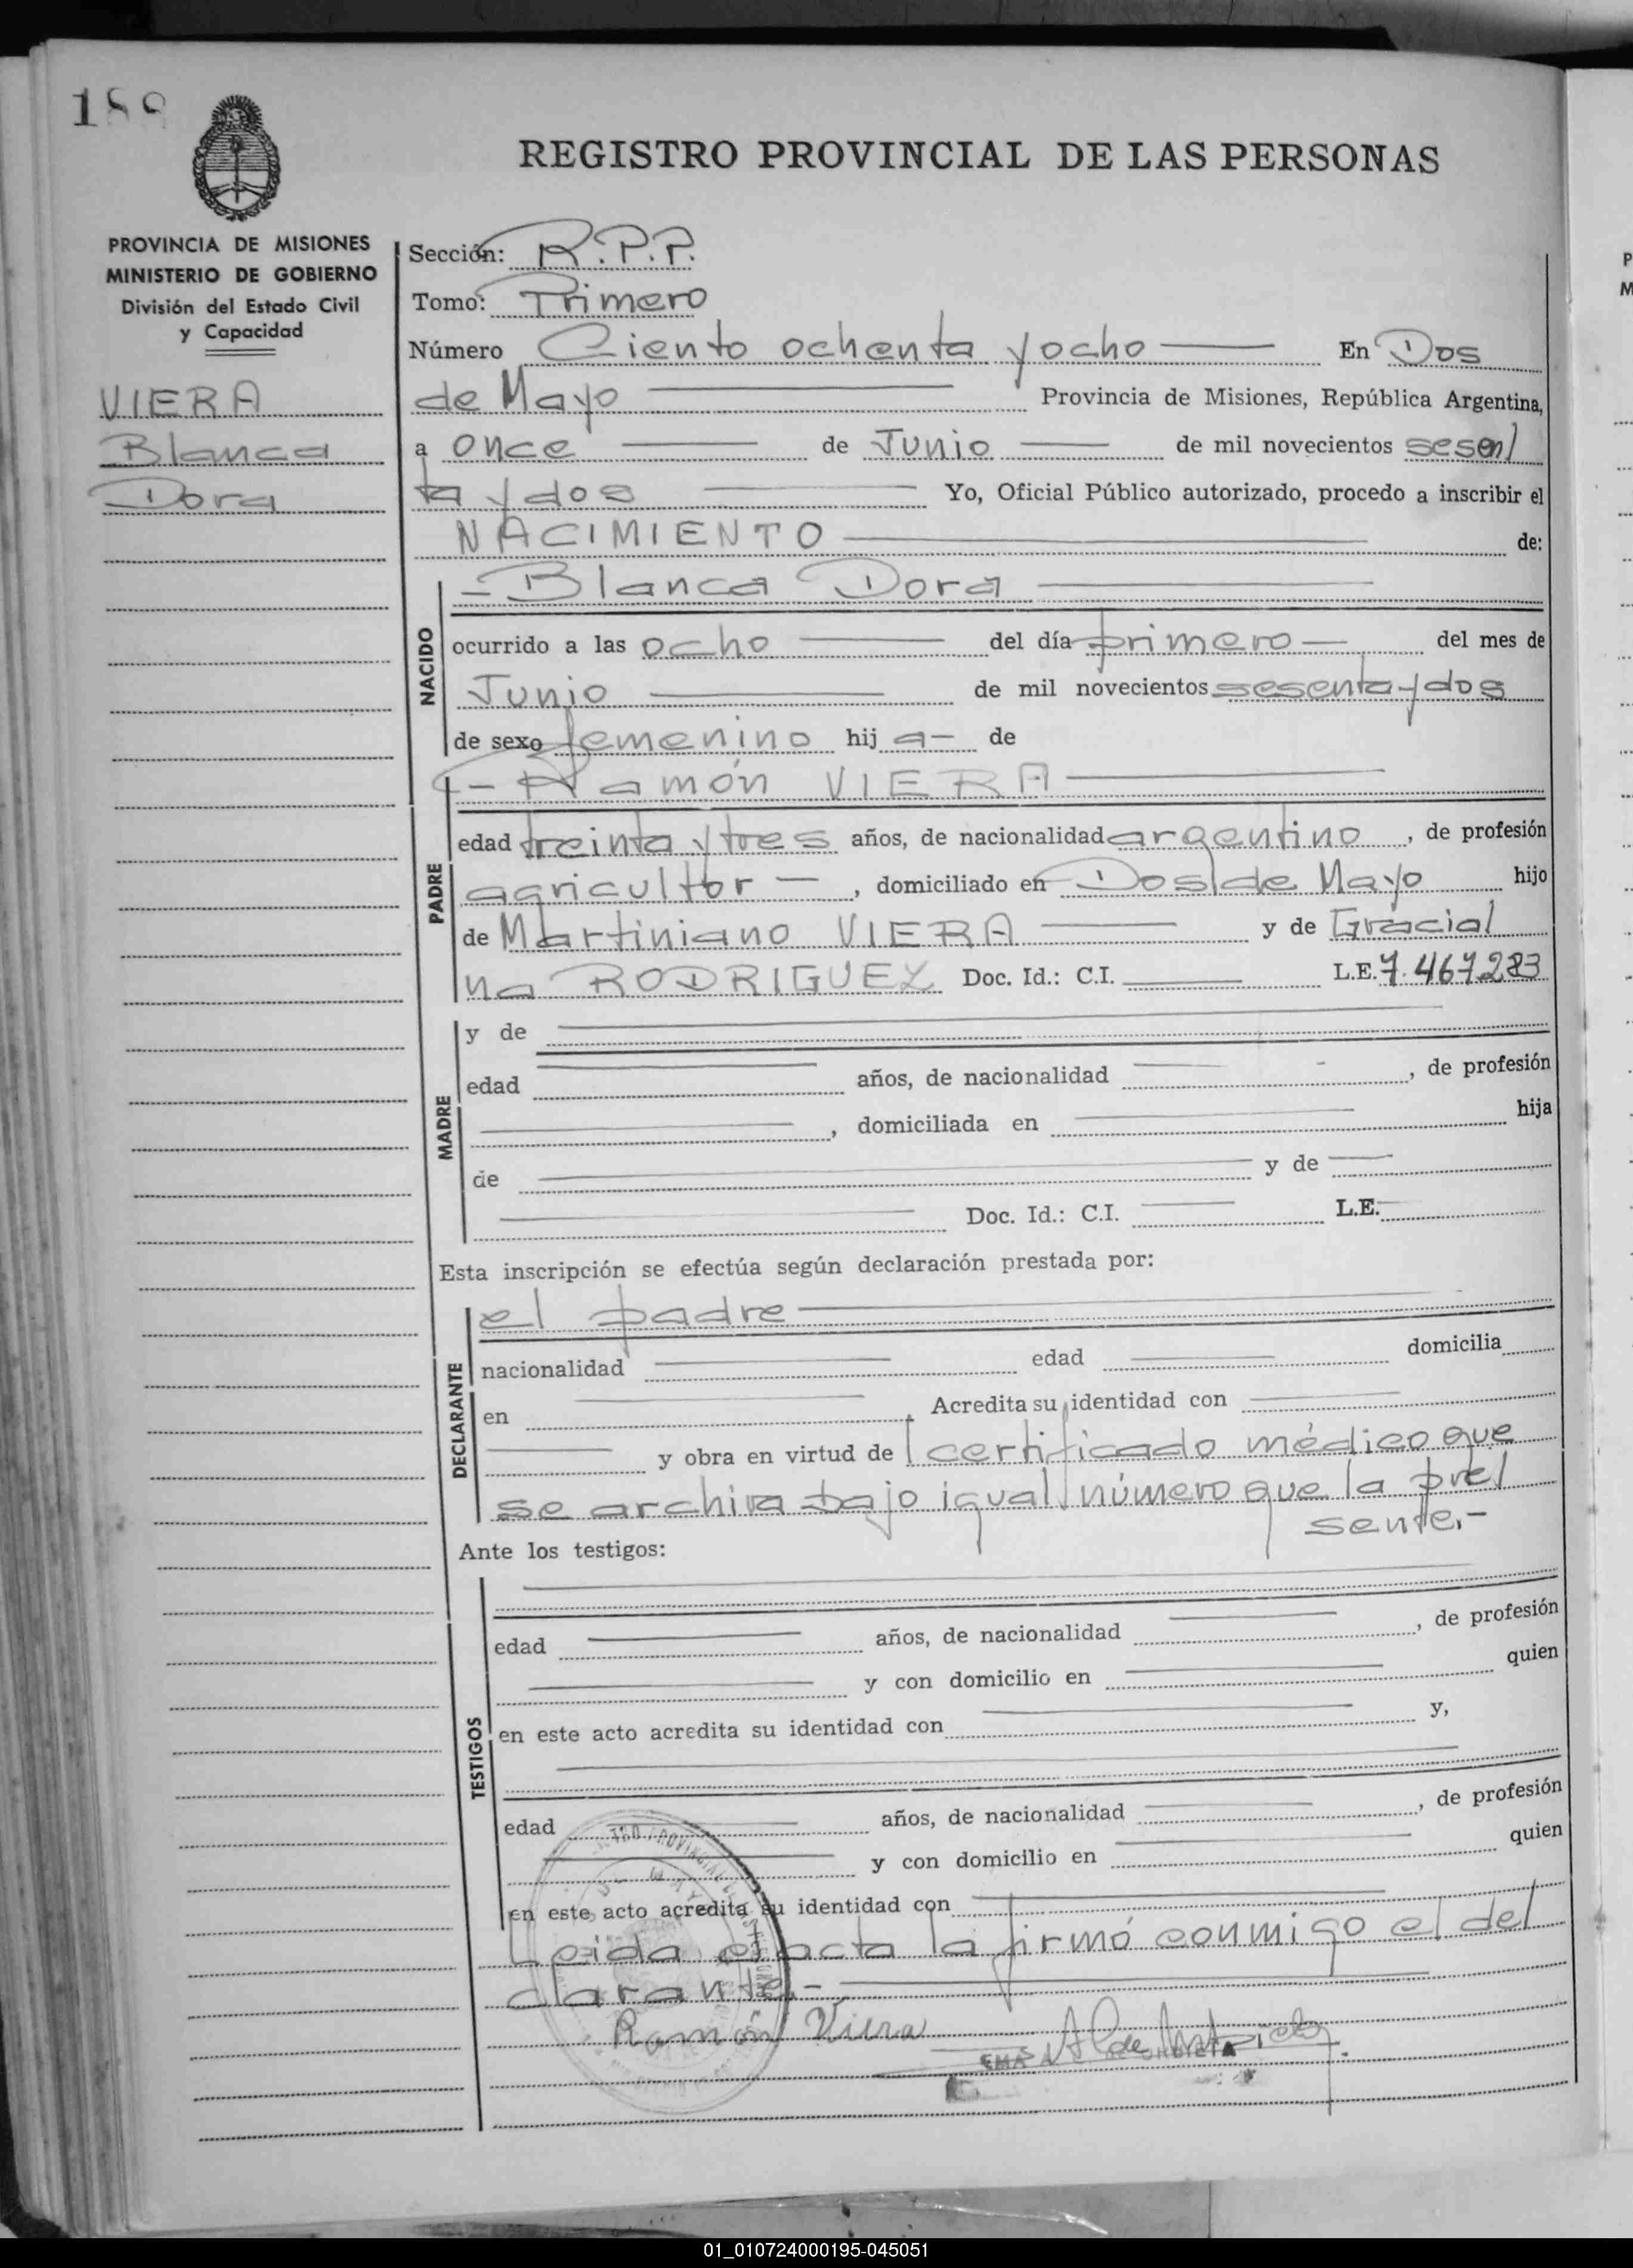 188
REGISTRO PROVINCIAL DE LAS PERSONAS
PROVINCIA DE MISIONES
MINISTERIO DE GOBIERNO
División del Estado Civil
y Capacidad
VIERA
Blanca
Dora
Sección: R.P.P.
Tomo: Primero
Número Ciento ochenta y ocho En Dos
de Mayo Provincia de Misiones, República Argentina,
a once de Junio de mil novecientos sesen/
ta y dos Yo, Oficial Público autorizado, procedo a inscribir el
NACIMIENTO de:
NACIDO
- Blanca Dora
ocurrido a las ocho del día primero del mes de
Junio de mil novecientos sesenta y dos
de sexo femenino hij a- de
PADRE
- Ramón VIERA
edad treinta y tres años, de nacionalidad argentino, de profesión
agricultor -, domiciliado en Dos de Mayo hijo
de Martiniano VIERA y de Gracia/
na RODRIGUEZ Doc. Id.: C.I. L.E. 7.467.283
MADRE
y de
edad años, de nacionalidad , de profesión
, domiciliada en hija
de y de
Doc. Id.: C.I. L.E.
Esta inscripción se efectúa según declaración prestada por:
DECLARANTE
el padre
nacionalidad edad domicilia
en . Acredita su identidad con
y obra en virtud de certificado médico que
se archiva bajo igual número que la pre/
sente.-
Ante los testigos:
TESTIGOS
edad años, de nacionalidad , de profesión
y con domicilio en quien
en este acto acredita su identidad con y,
edad años, de nacionalidad , de profesión
y con domicilio en quien
en este acto acredita su identidad con
Leida el acta la firmó conmigo el de/
clarante.-
Ramón Viera
01_010724000195-045051